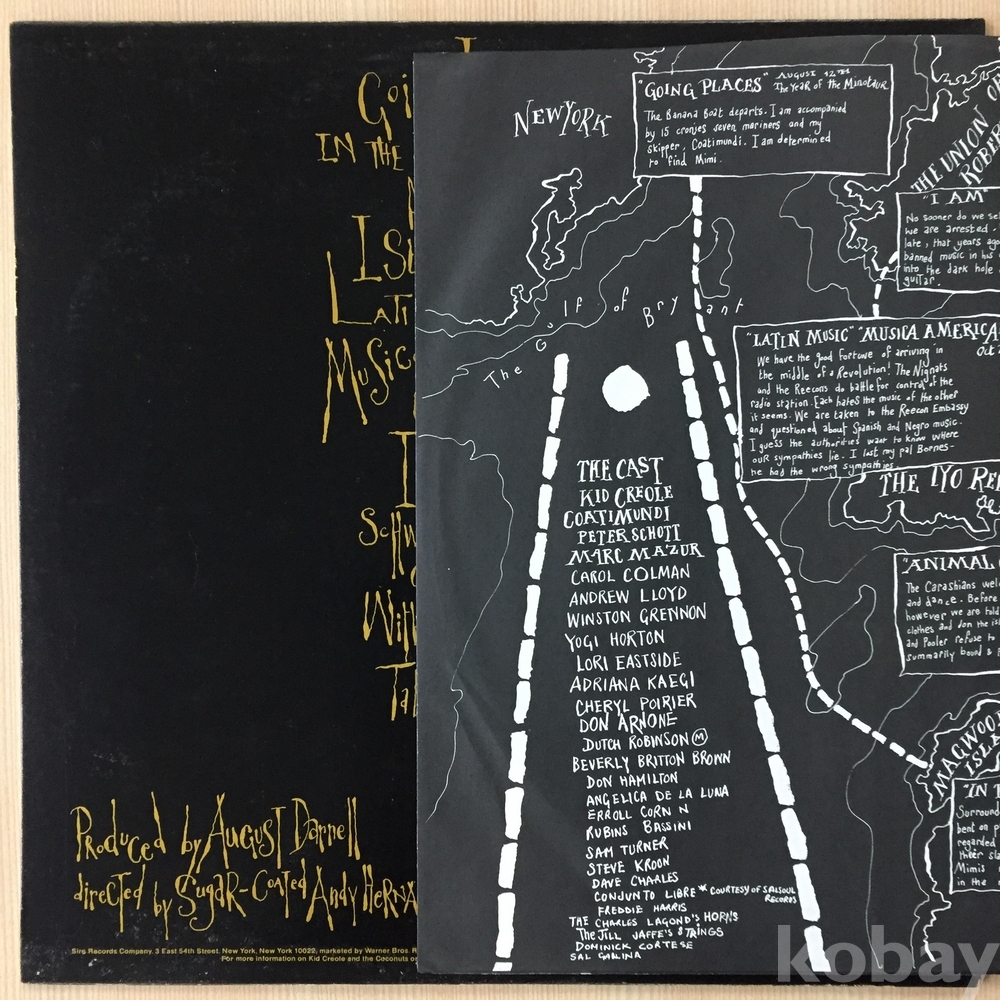 Goi
IN THE
ISL
LATI
MUSIC
SCHW
WITH
TA
Produced by August Darnell
directed by Sugar-Coated Andy HERNA
Sire Records Company, 3 East 54th Street, New York, New York 10022, marketed by Warner Bros. R
For more information on Kid Creole and the Coconuts
NEW YORK
"GOING PLACES" AUGUST 12TH
The Year of the Minotaur
The Banana Boat departs. I am accompanied
by 15 cronjes seven mariners and my
skipper, Coatimundi. I am determined
to find Mimi.
THE UNION OF
ROBER
"I AM
No sooner do we se
we are arrested.
late, that years ago
banned music in his
into the dark hole
guitar.
The Gulf of Bryant
"LATIN MUSIC" "MUSICA AMERICA
Oct
We have the good fortune of arriving in
the middle of a Revolution! The Nignats
and the Reecons do battle for control of the
radio station. Each hates the music of the other
it seems. We are taken to the Reecon Embassy
and questioned about Spanish and Negro music.
I guess the authorities want to know where
our sympathies lie. I lost my pal Bornes-
he had the wrong sympathies.
THE IYO RE
"ANIMAL C
The Carashians welc
and dance. Before
however we are told
clothes and don the isl
and Pooler refuse to
summarily bound &
MAGWOO
ISLA
"IN T
Surround
bent on p
regarded
their sla
Mimis
in the
THE CAST
KID CREOLE
COATIMUNDI
PETER SCHOTT
MARC MAZUR
CAROL COLMAN
ANDREW LLOYD
WINSTON GRENNON
YOGI HORTON
LORI EASTSIDE
ADRIANA KAEGI
CHERYL POIRIER
DON ARNONE
DUTCH ROBINSON Ⓜ
BEVERLY BRITTON BROWN
DON HAMILTON
ANGELICA DE LA LUNA
ERROLL CORN N
RUBINS BASSINI
SAM TURNER
STEVE KROON
DAVE CHARLES
CONJUNTO LIBRE * COURTESY OF SALSOUL
RECORDS
FREDDIE HARRIS
THE CHARLES LAGOND'S HORNS
The JILL JAFFE'S STRINGS
DOMINICK CORTESE
SAL GALLINA
kobay